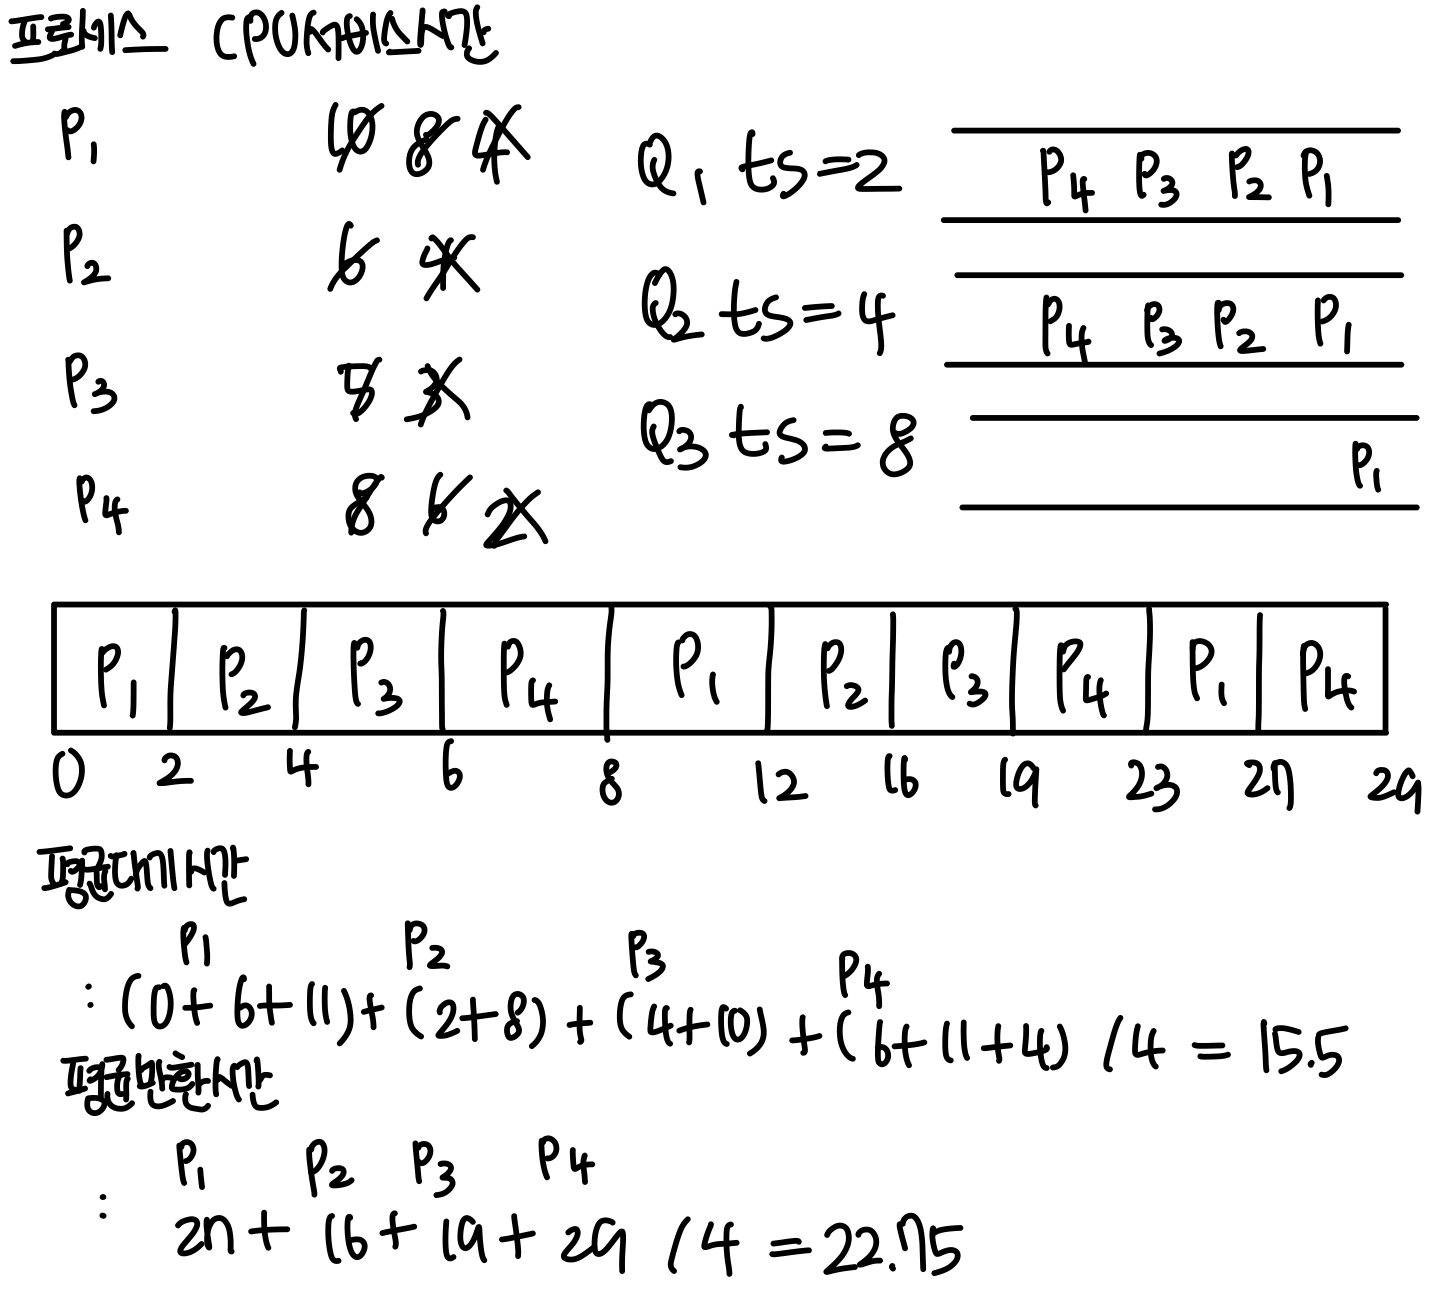 프로세스 CPU서비스시간
P1 10 8 4
P2 6 4
P3 5 3
P4 8 6 2
Q1 ts=2 P4 P3 P2 P1
Q2 ts=4 P4 P3 P2 P1
Q3 ts=8 P1
P1 P2 P3 P4 P1 P2 P3 P4 P1 P4
0 2 4 6 8 12 16 19 23 27 29
평균대기시간
P1 P2 P3 P4
: (0+6+11)+(2+8)+(4+10)+(6+11+4) /4 = 15.5
평균반환시간
P1 P2 P3 P4
: 27+16+19+29 /4 =22.75